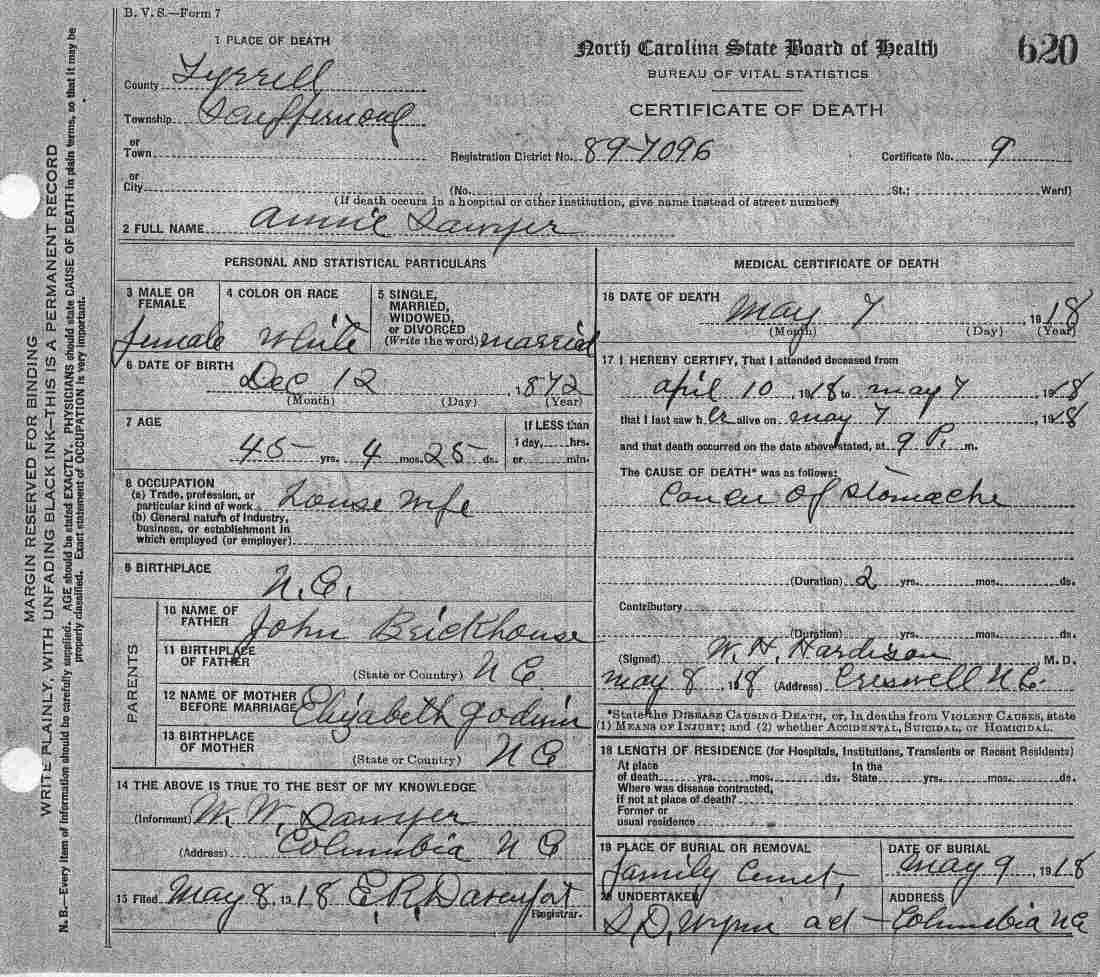 B. V. S.—Form 7
1 PLACE OF DEATH
County Tyrrell
Township Scuppernong
or Town
or City
North Carolina State Board of Health
BUREAU OF VITAL STATISTICS
CERTIFICATE OF DEATH
620
Registration District No. 89-7096 Certificate No. 9
(No. St.; Ward)
(If death occurs in a hospital or other institution, give name instead of street number)
2 FULL NAME Annie Sawyer
PERSONAL AND STATISTICAL PARTICULARS
3 MALE OR FEMALE female
4 COLOR OR RACE White
5 SINGLE, MARRIED, WIDOWED, or DIVORCED (Write the word) married
6 DATE OF BIRTH
Dec 12, 1872
(Month) (Day) (Year)
7 AGE
45 yrs. 4 mos. 25 ds.
If LESS than 1 day, hrs. or min.
8 OCCUPATION
(a) Trade, profession, or particular kind of work House Wife
(b) General nature of Industry, business, or establishment in which employed (or employer)
9 BIRTHPLACE N.C.
PARENTS
10 NAME OF FATHER John Brickhouse
11 BIRTHPLACE OF FATHER (State or Country) N C
12 NAME OF MOTHER BEFORE MARRIAGE Elizabeth Godwin
13 BIRTHPLACE OF MOTHER (State or Country) N C
14 THE ABOVE IS TRUE TO THE BEST OF MY KNOWLEDGE
(Informant) W. W. Sawyer
(Address) Columbia N C
15 Filed May 8, 1918 E. R. Davenport
Registrar.
MEDICAL CERTIFICATE OF DEATH
16 DATE OF DEATH
May 7, 1918
(Month) (Day) (Year)
17 I HEREBY CERTIFY, That I attended deceased from
April 10 1918 to May 7, 1918
that I last saw her alive on May 7, 1918
and that death occurred on the date above stated, at 9 P. m.
The CAUSE OF DEATH* was as follows:
Cancer of Stomache
(Duration) 2 yrs. mos. ds.
Contributory
(Duration) yrs. mos. ds.
(Signed) W. H. Hardison M. D.
May 8, 1918 (Address) Creswell N C.
*State the DISEASE CAUSING DEATH, or, in deaths from VIOLENT CAUSES, state
(1) MEANS OF INJURY; and (2) whether ACCIDENTAL, SUICIDAL, or HOMICIDAL.
18 LENGTH OF RESIDENCE (for Hospitals, Institutions, Transients or Recent Residents)
At place of death yrs. mos. ds. In the State yrs. mos. ds.
Where was disease contracted, if not at place of death?
Former or usual residence
19 PLACE OF BURIAL OR REMOVAL Family Cemet,
DATE OF BURIAL May 9, 1918
20 UNDERTAKER S. D. Wynn
ADDRESS Columbia N C
MARGIN RESERVED FOR BINDING
WRITE PLAINLY, WITH UNFADING BLACK INK—THIS IS A PERMANENT RECORD
N. B.—Every item of information should be carefully supplied. AGE should be stated EXACTLY. PHYSICIANS should state CAUSE OF DEATH in plain terms, so that it may be
properly classified. Exact statement of OCCUPATION is very important.